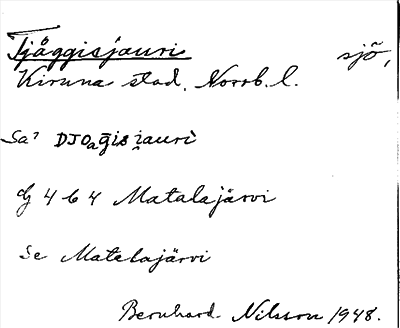 Tjåggisjauri sjö,
Kiruna stad, Norrb. l.
Sa? DJOagis jauri
dj 4 b 4 Matalajärvi
Se Matelajärvi
Bernhard Nilsson 1948.